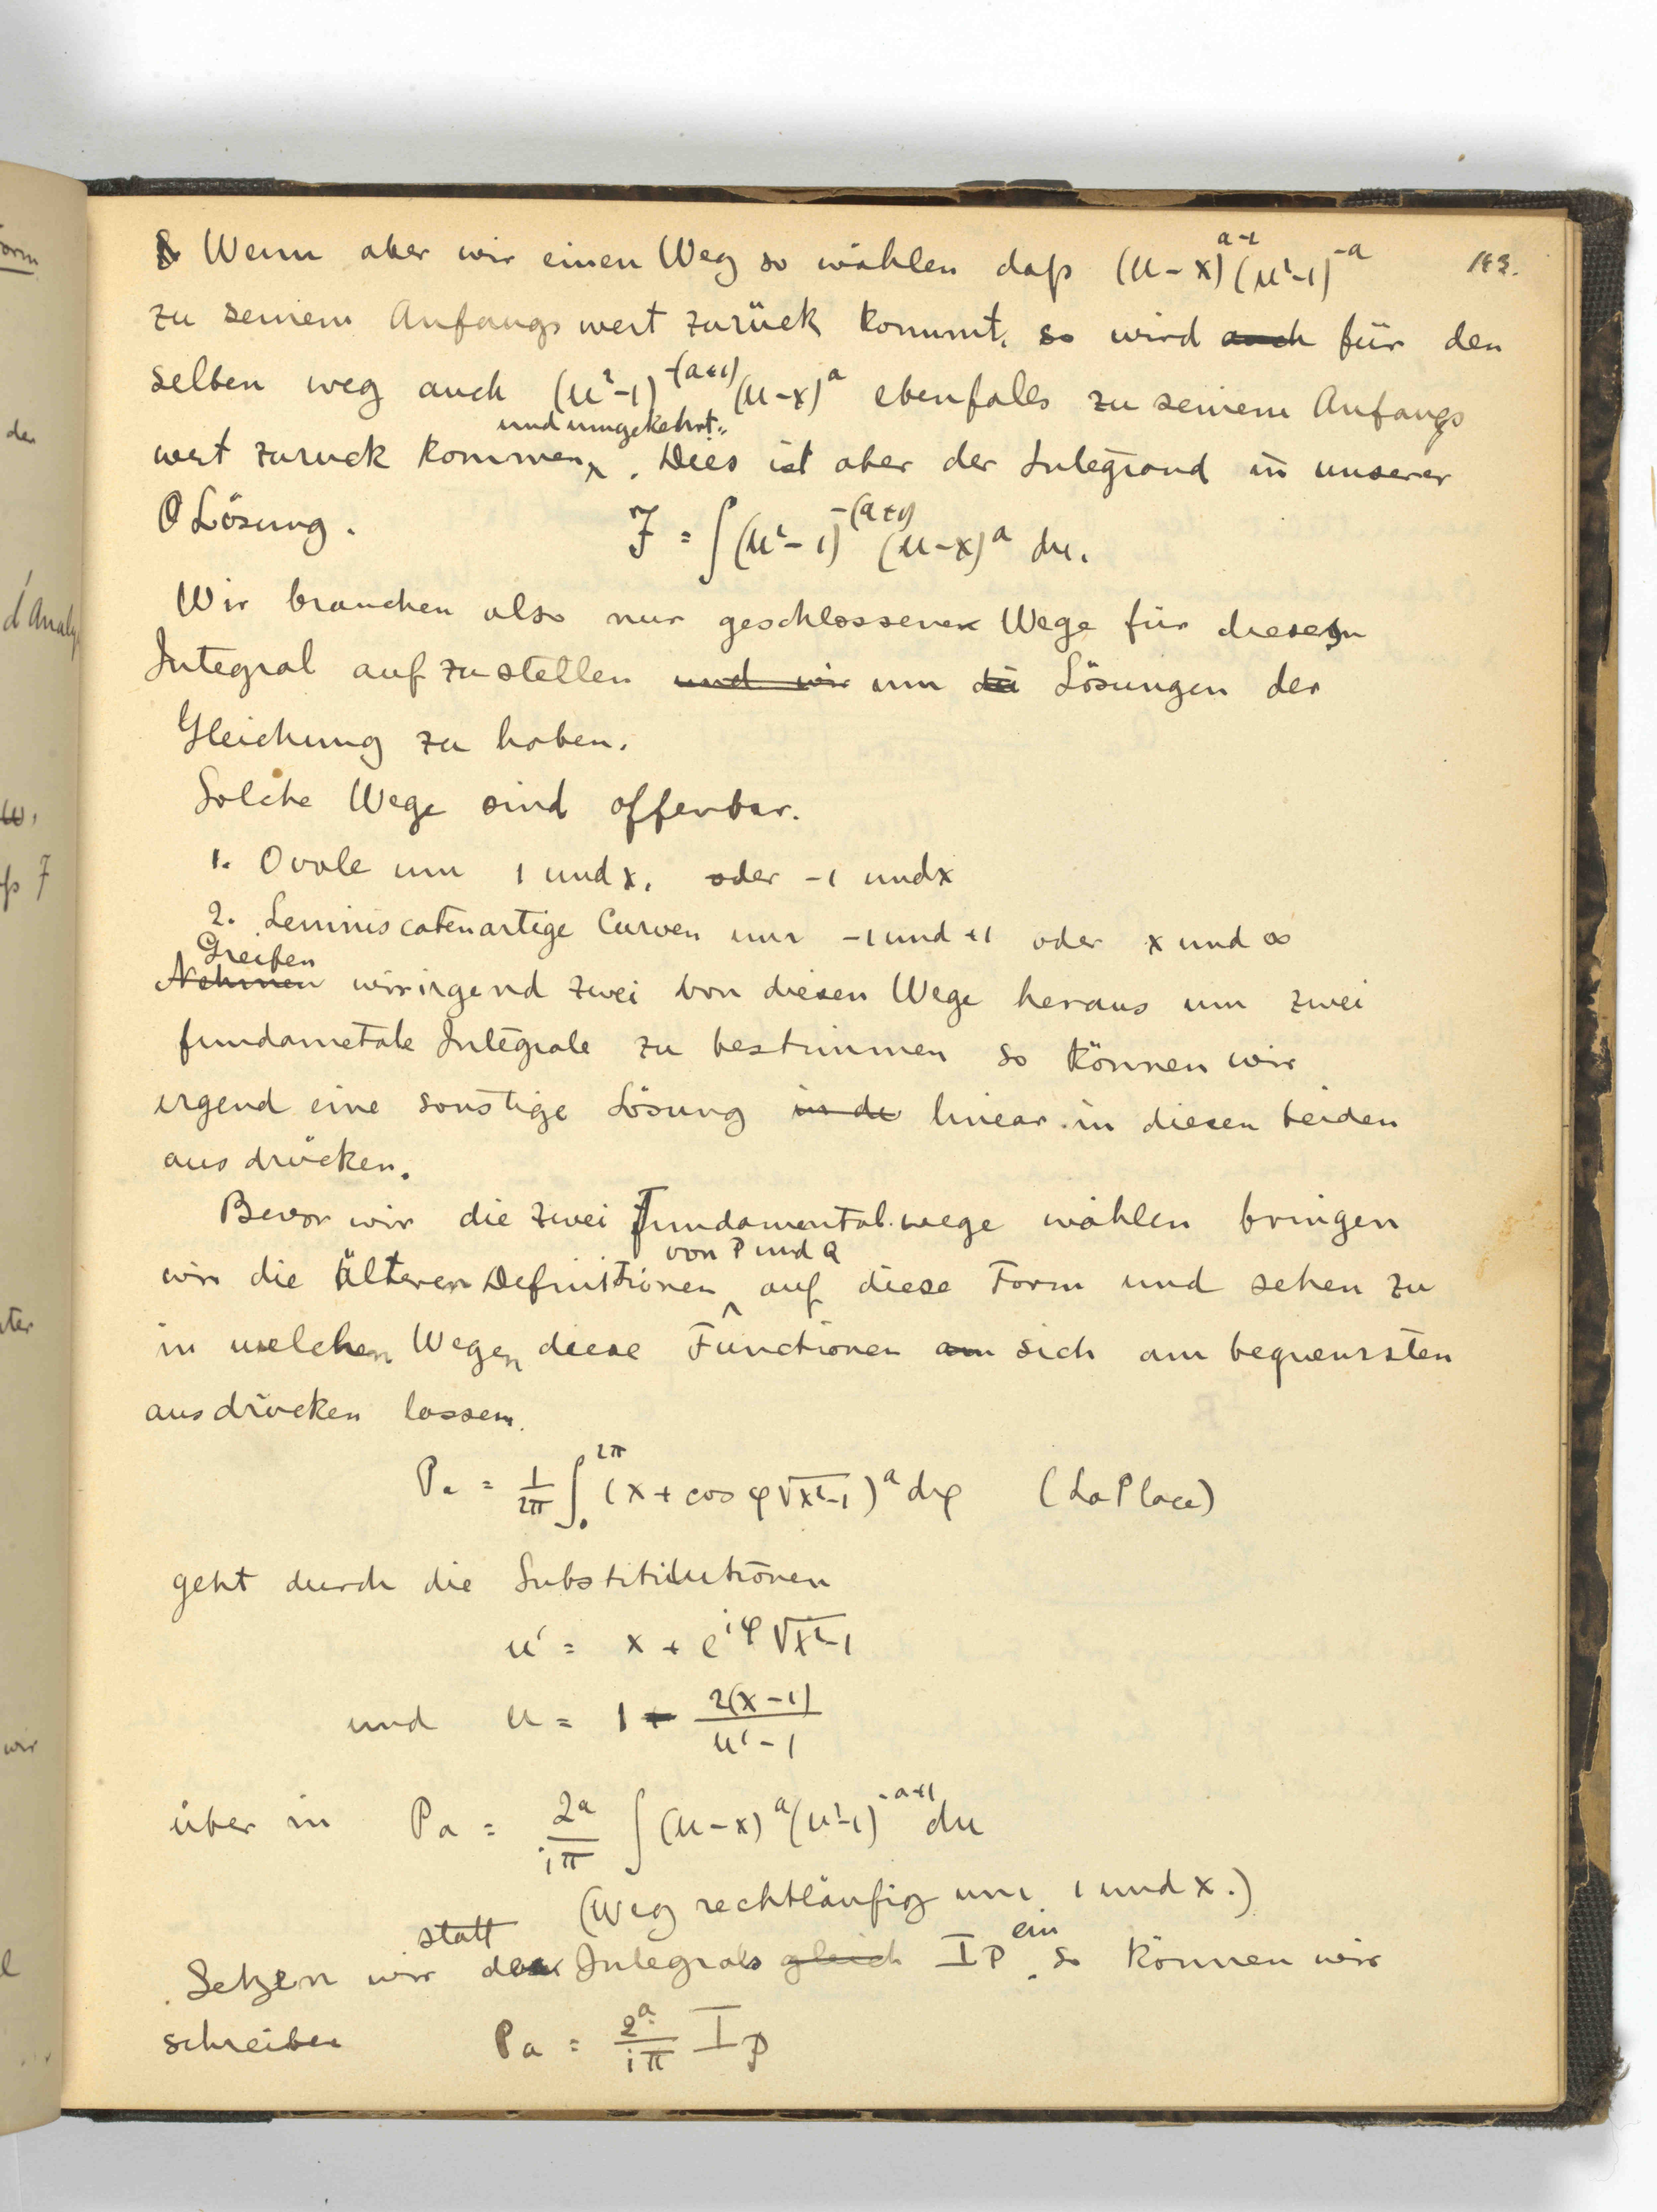 orm
Wenn aber wir einen Weg so wählen daß (u-x)^{a-1} (u²-1)^{-a} 143.
zu seinem Anfangs wert zurück kommt, so wird auch für den
der
selben weg auch (u²-1)^{-(a+1)} (u-x)^a ebenfalls zu seinem Anfangs
und umgekehrt.
wert zuruck kommen. Dies ist aber der Integrand in unserer
Lösung. J = ∫(u²-1)^{-(a+1)} (u-x)^a du.
d'Analy
Wir brauchen also nur geschlossene Wege für diesen
Integral aufzustellen und wir um die Lösungen der
Gleichung zu haben.
Solche Wege sind offenbar.
1. Ovale um 1 und x, oder -1 und x
2. Leminiscatenartige Curven um -1 und +1 oder x und ∞
Greifen
Nehmen wir irgend zwei von diesen Wege heraus um zwei
fundametale Integrale zu bestimmen so können wir
irgend eine sonstige Lösung in de linear in diesen beiden
aus drücken.
Bevor wir die zwei Fundamental wege wählen bringen
von P und Q
wir die Älteren Definitionen auf diese Form und sehen zu
in welchen Wegen diese Functionen am sich am bequemsten
ausdrücken lassen.
P_a = 1/2π ∫_0^{2π} (x + cos φ √x²-1)^a dφ (LaPlace)
geht durch die Substitutionen
u' = x + e^{iφ} √x²-1
wir
und u = 1 + 2(x-1)/u'-1
über in P_a = 2^a/iπ ∫(u-x)^a (u²-1)^{-a+1} du
(Weg rechtläufig um 1 und x.)
statt ein
Setzen wir des Integrals gleich I P so können wir
schreiben P_a = 2^a/iπ I_P